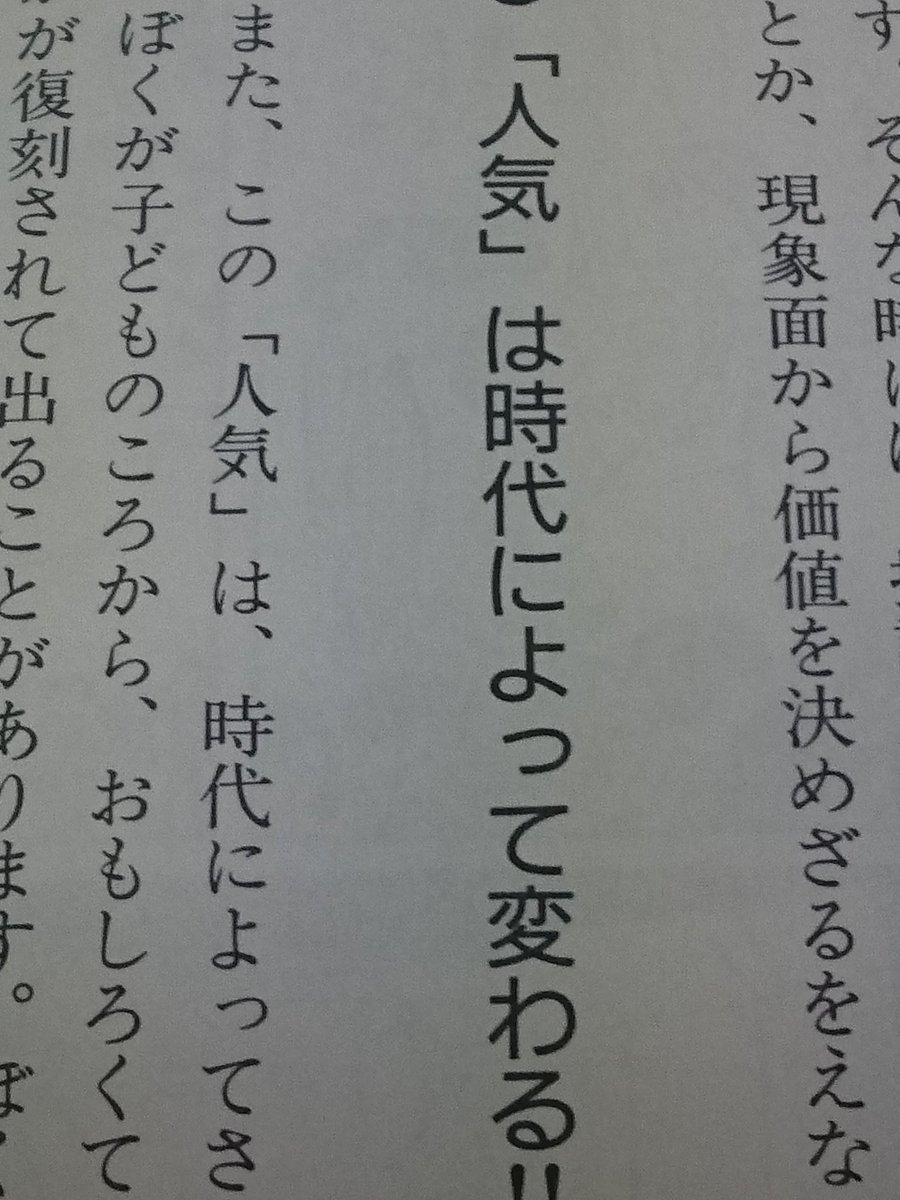 そんな時には
とか、現象面から価値を決めざるをえな
「人気」は時代によって変わる!!
また、この「人気」は、時代によってさ
ぼくが子どものころから、おもしろくて
が復刻されて出ることがあります。ぼ